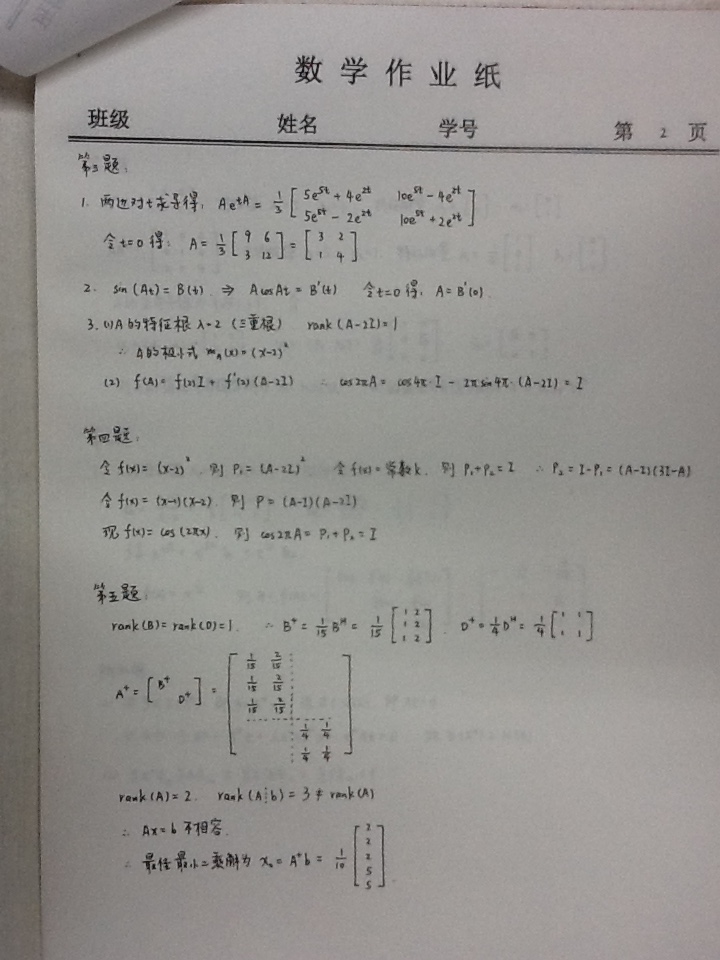 数学作业纸
班级 姓名 学号 第 2 页
第三题:
1. 两边对t求导得: Ae^{tA} = 1/3 [5e^{5t}+4e^{2t} 10e^{5t}-4e^{2t}; 5e^{5t}-2e^{2t} 10e^{5t}+2e^{2t}]
令t=0得: A = 1/3 [9 6; 3 12] = [3 2; 1 4]
2. sin(At) = B(t) ⇒ AcosAt = B'(t) 令t=0得, A = B'(0).
3. (1) A的特征根 λ=2 (三重根) rank(A-2I)=1
∴ A的极小式 m_A(x)=(x-2)^2
(2) f(A) = f(2)I + f'(2)(A-2I) ∴ cos2πA = cos4π·I - 2πsin4π·(A-2I) = I
第四题:
令 f(x)=(x-2)^2, 则 P₁=(A-2I)^2 令 f(x)=常数k, 则 P₁+P₂=I ∴ P₂=I-P₁=(A-I)(3I-A)
令 f(x)=(x-1)(x-2), 则 P=(A-I)(A-2I)
现 f(x)=cos(2πx), 则 cos2πA=P₁+P₂=I
第五题:
rank(B)=rank(D)=1. ∴ B⁺=1/15 B^H = 1/15 [1 2; 1 2; 1 2]. D⁺=1/4 D^H = 1/4 [1 1; 1 1]
A⁺ = [B⁺ D⁺] = [1/15 2/15; 1/15 2/15; 1/15 2/15; 1/4 1/4; 1/4 1/4]
rank(A)=2. rank(A⋮b)=3≠rank(A)
∴ Ax=b 不相容.
∴ 最佳最小二乘解为 x₀=A⁺b = 1/10 [2; 2; 2; 5; 5].